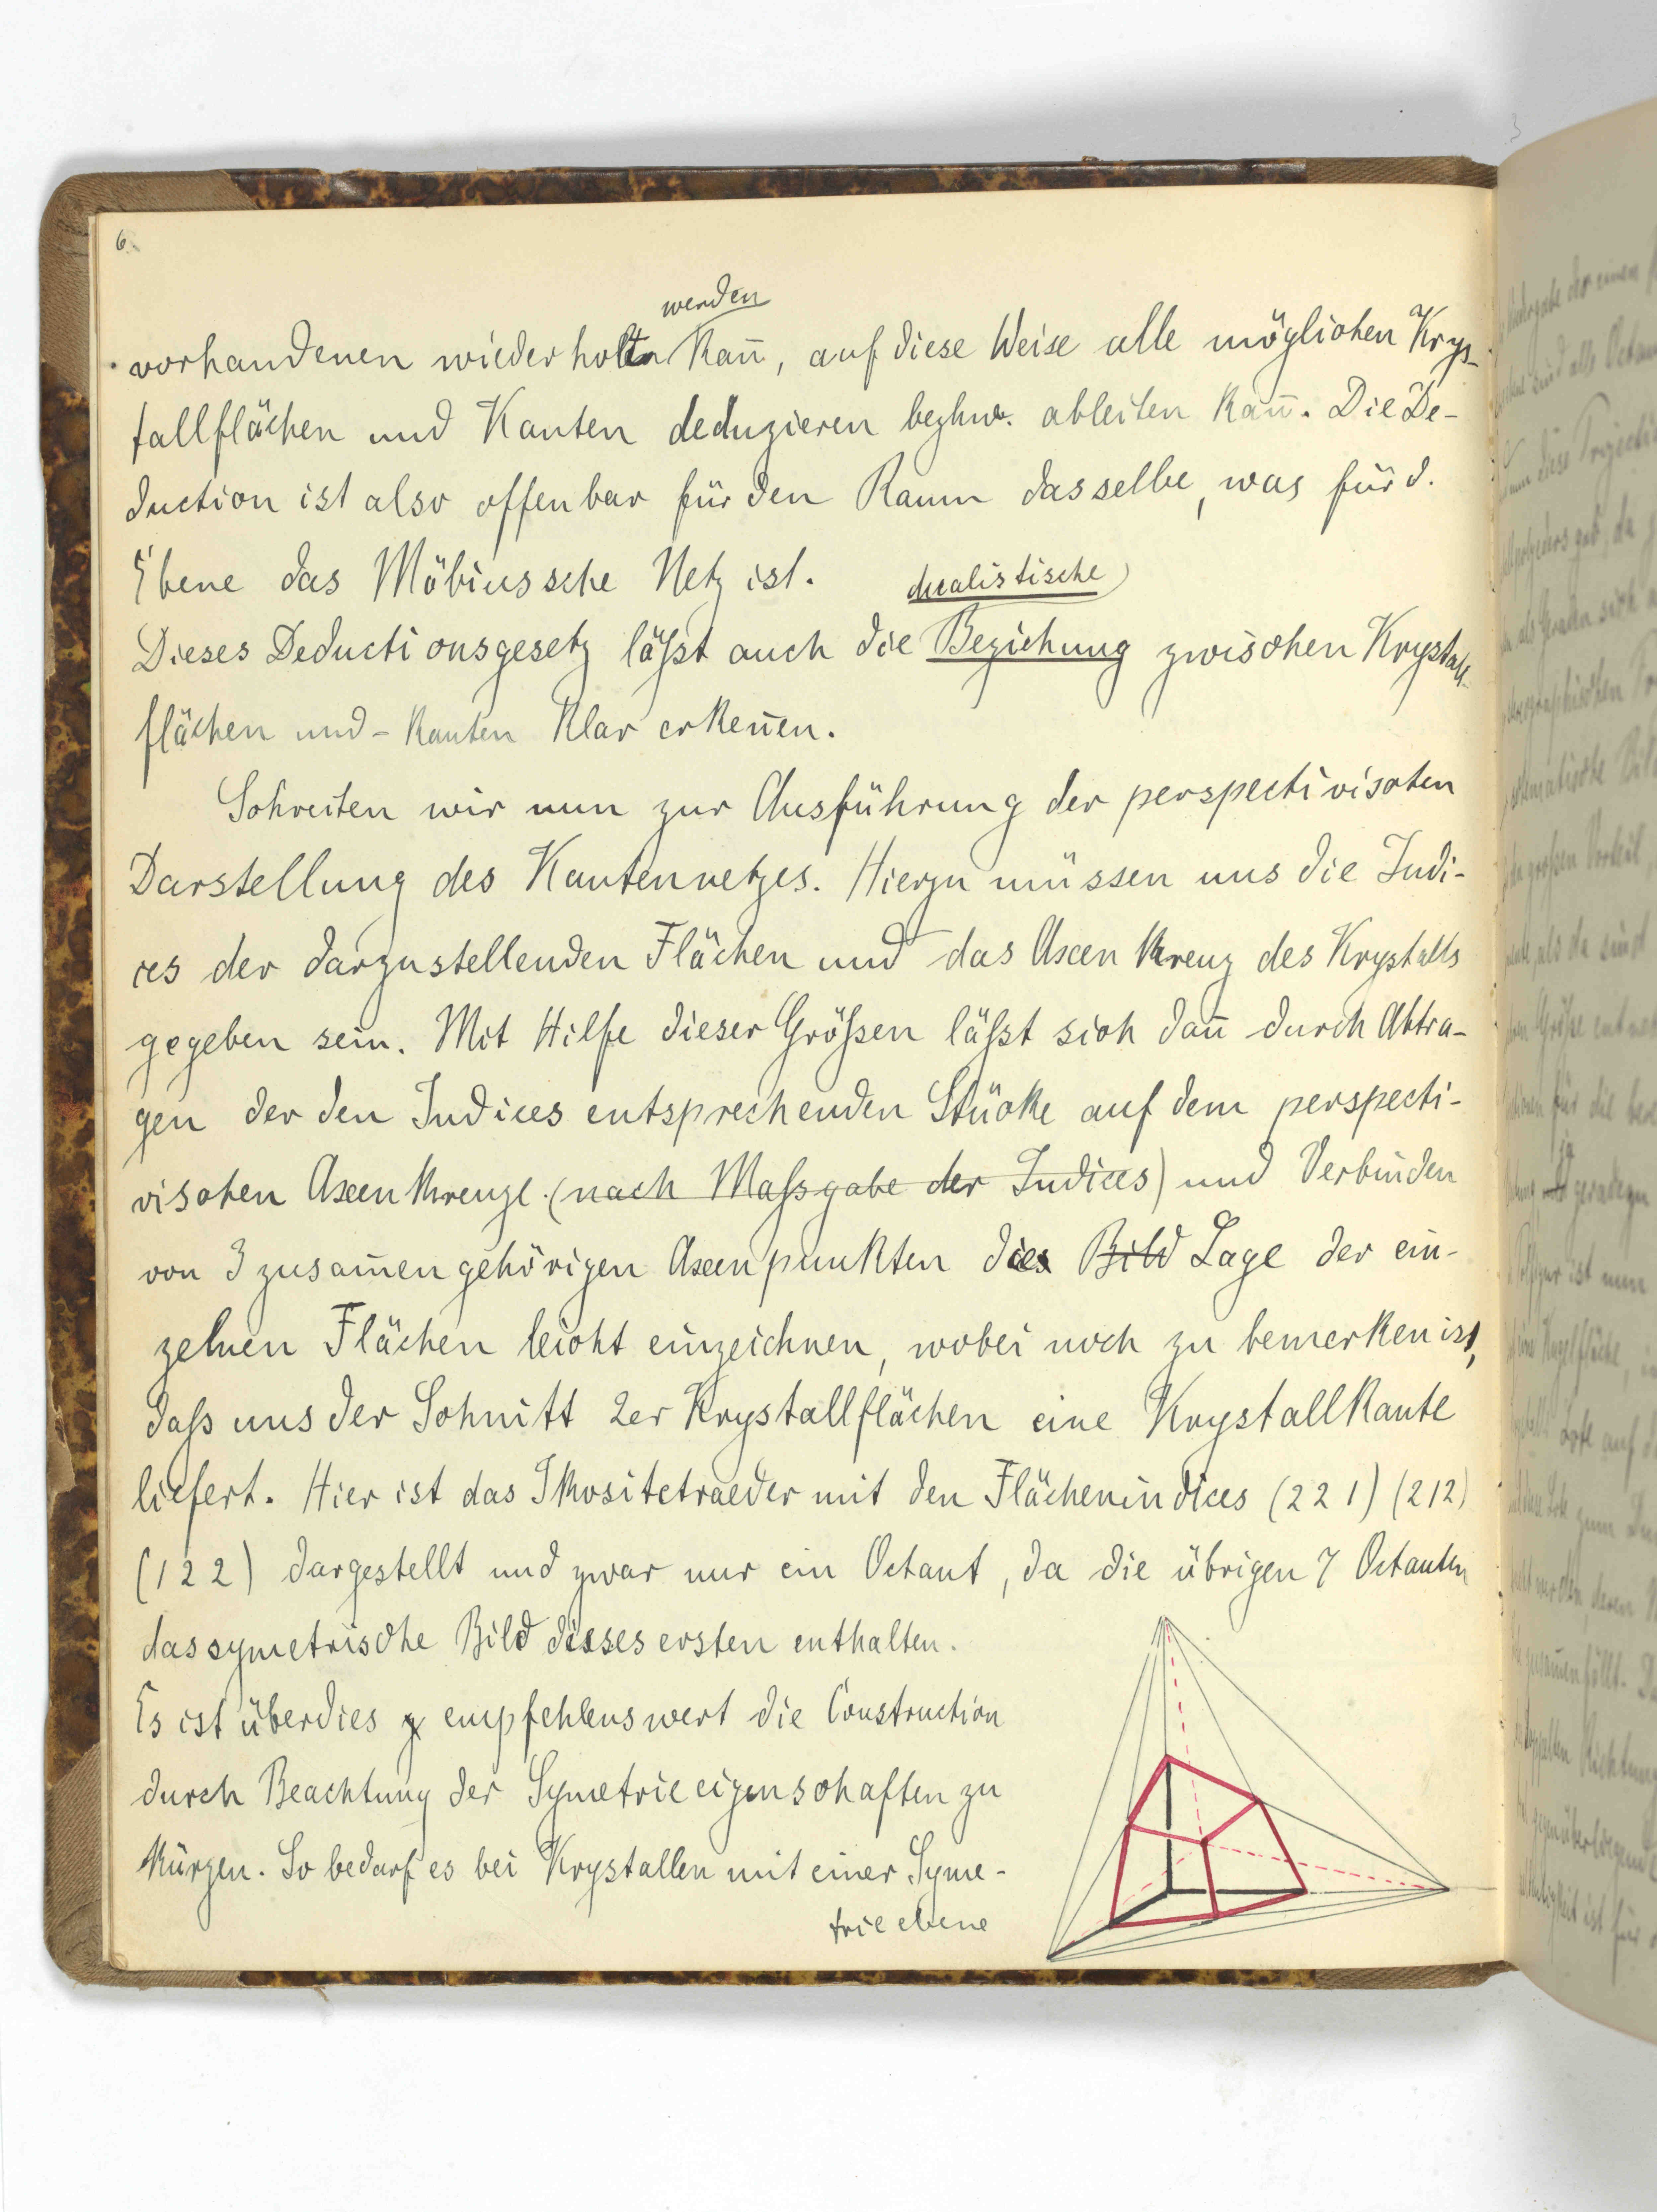 6.
werden
vorhandenen wiederholt kan̄, auf diese Weise alle möglichen Krys-
tallflächen und Kanten deduzieren bezhw. ableiten kan̄. Die De-
duction ist also offenbar für den Raum dasselbe, was für d.
Ebene das Möbiussche Netz ist.
dualistische
Dieses Deductionsgesetz läßt auch die Beziehung zwischen Krystall-
flächen und -kanten klar erken̄en.
Schreiten wir nun zur Ausführung der perspectivischen
Darstellung des Kantennetzes. Hierzu müssen uns die Indi-
ces der darzustellenden Flächen und das Axenkreuz des Krystalls
gegeben sein. Mit Hilfe dieser Größen läßt sich dan̄ durch Abtra-
gen der den Indices entsprechenden Stücke auf dem perspecti-
vischen Axenkreuze (nach Maßgabe der Indices) und Verbinden
von 3 zusam̄engehörigen Axenpunkten die Bild Lage der ein-
zelnen Flächen leicht einzeichnen, wobei noch zu bemerken ist,
daß uns der Schnitt 2er Krystallflächen eine Krystallkante
liefert. Hier ist das Ikositetraeder mit den Flächenindices (221) (212)
(122) dargestellt und zwar nur ein Octant, da die übrigen 7 Octanten
das symetrische Bild dieses ersten enthalten.
Es ist überdies empfehlenswert die Construction
durch Beachtung der Symetrieeigenschaften zu
kürzen. So bedarf es bei Krystallen mit einer Syme-
trieebene